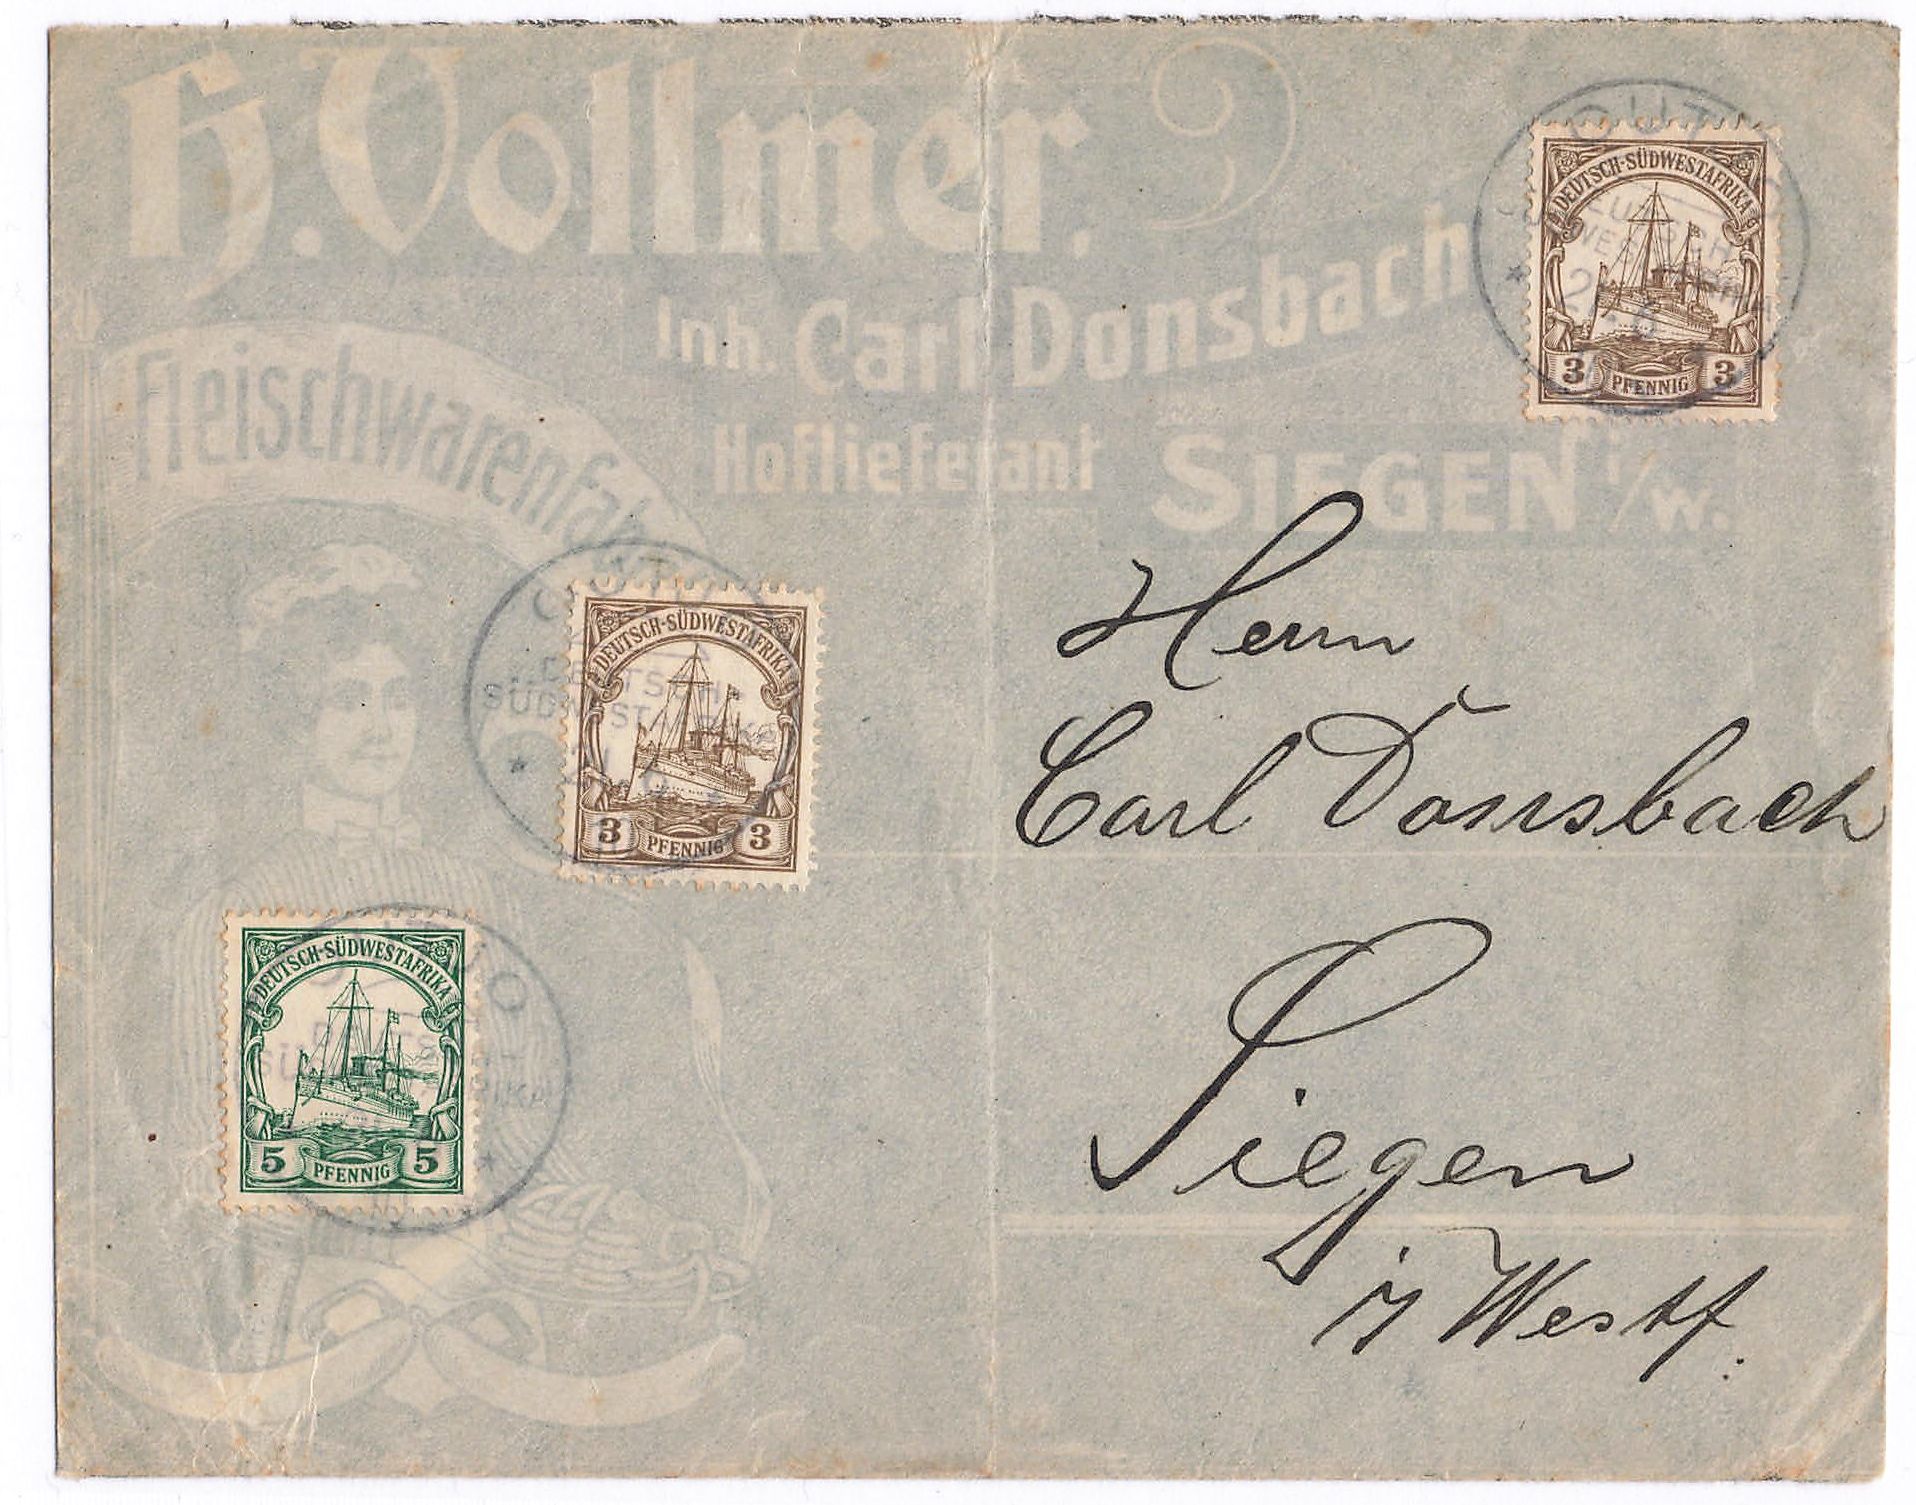 H. Vollmer.
Inh. Carl Donsbach
Hoflieferant SIEGEN i/W.
DEUTSCH-SÜDWESTAFRIKA
3 PFENNIG 3
Herrn
Carl Donsbach
Siegen
i/ Westf.
DEUTSCH-SÜDWESTAFRIKA
3 PFENNIG 3
DEUTSCH-SÜDWESTAFRIKA
5 PFENNIG 5